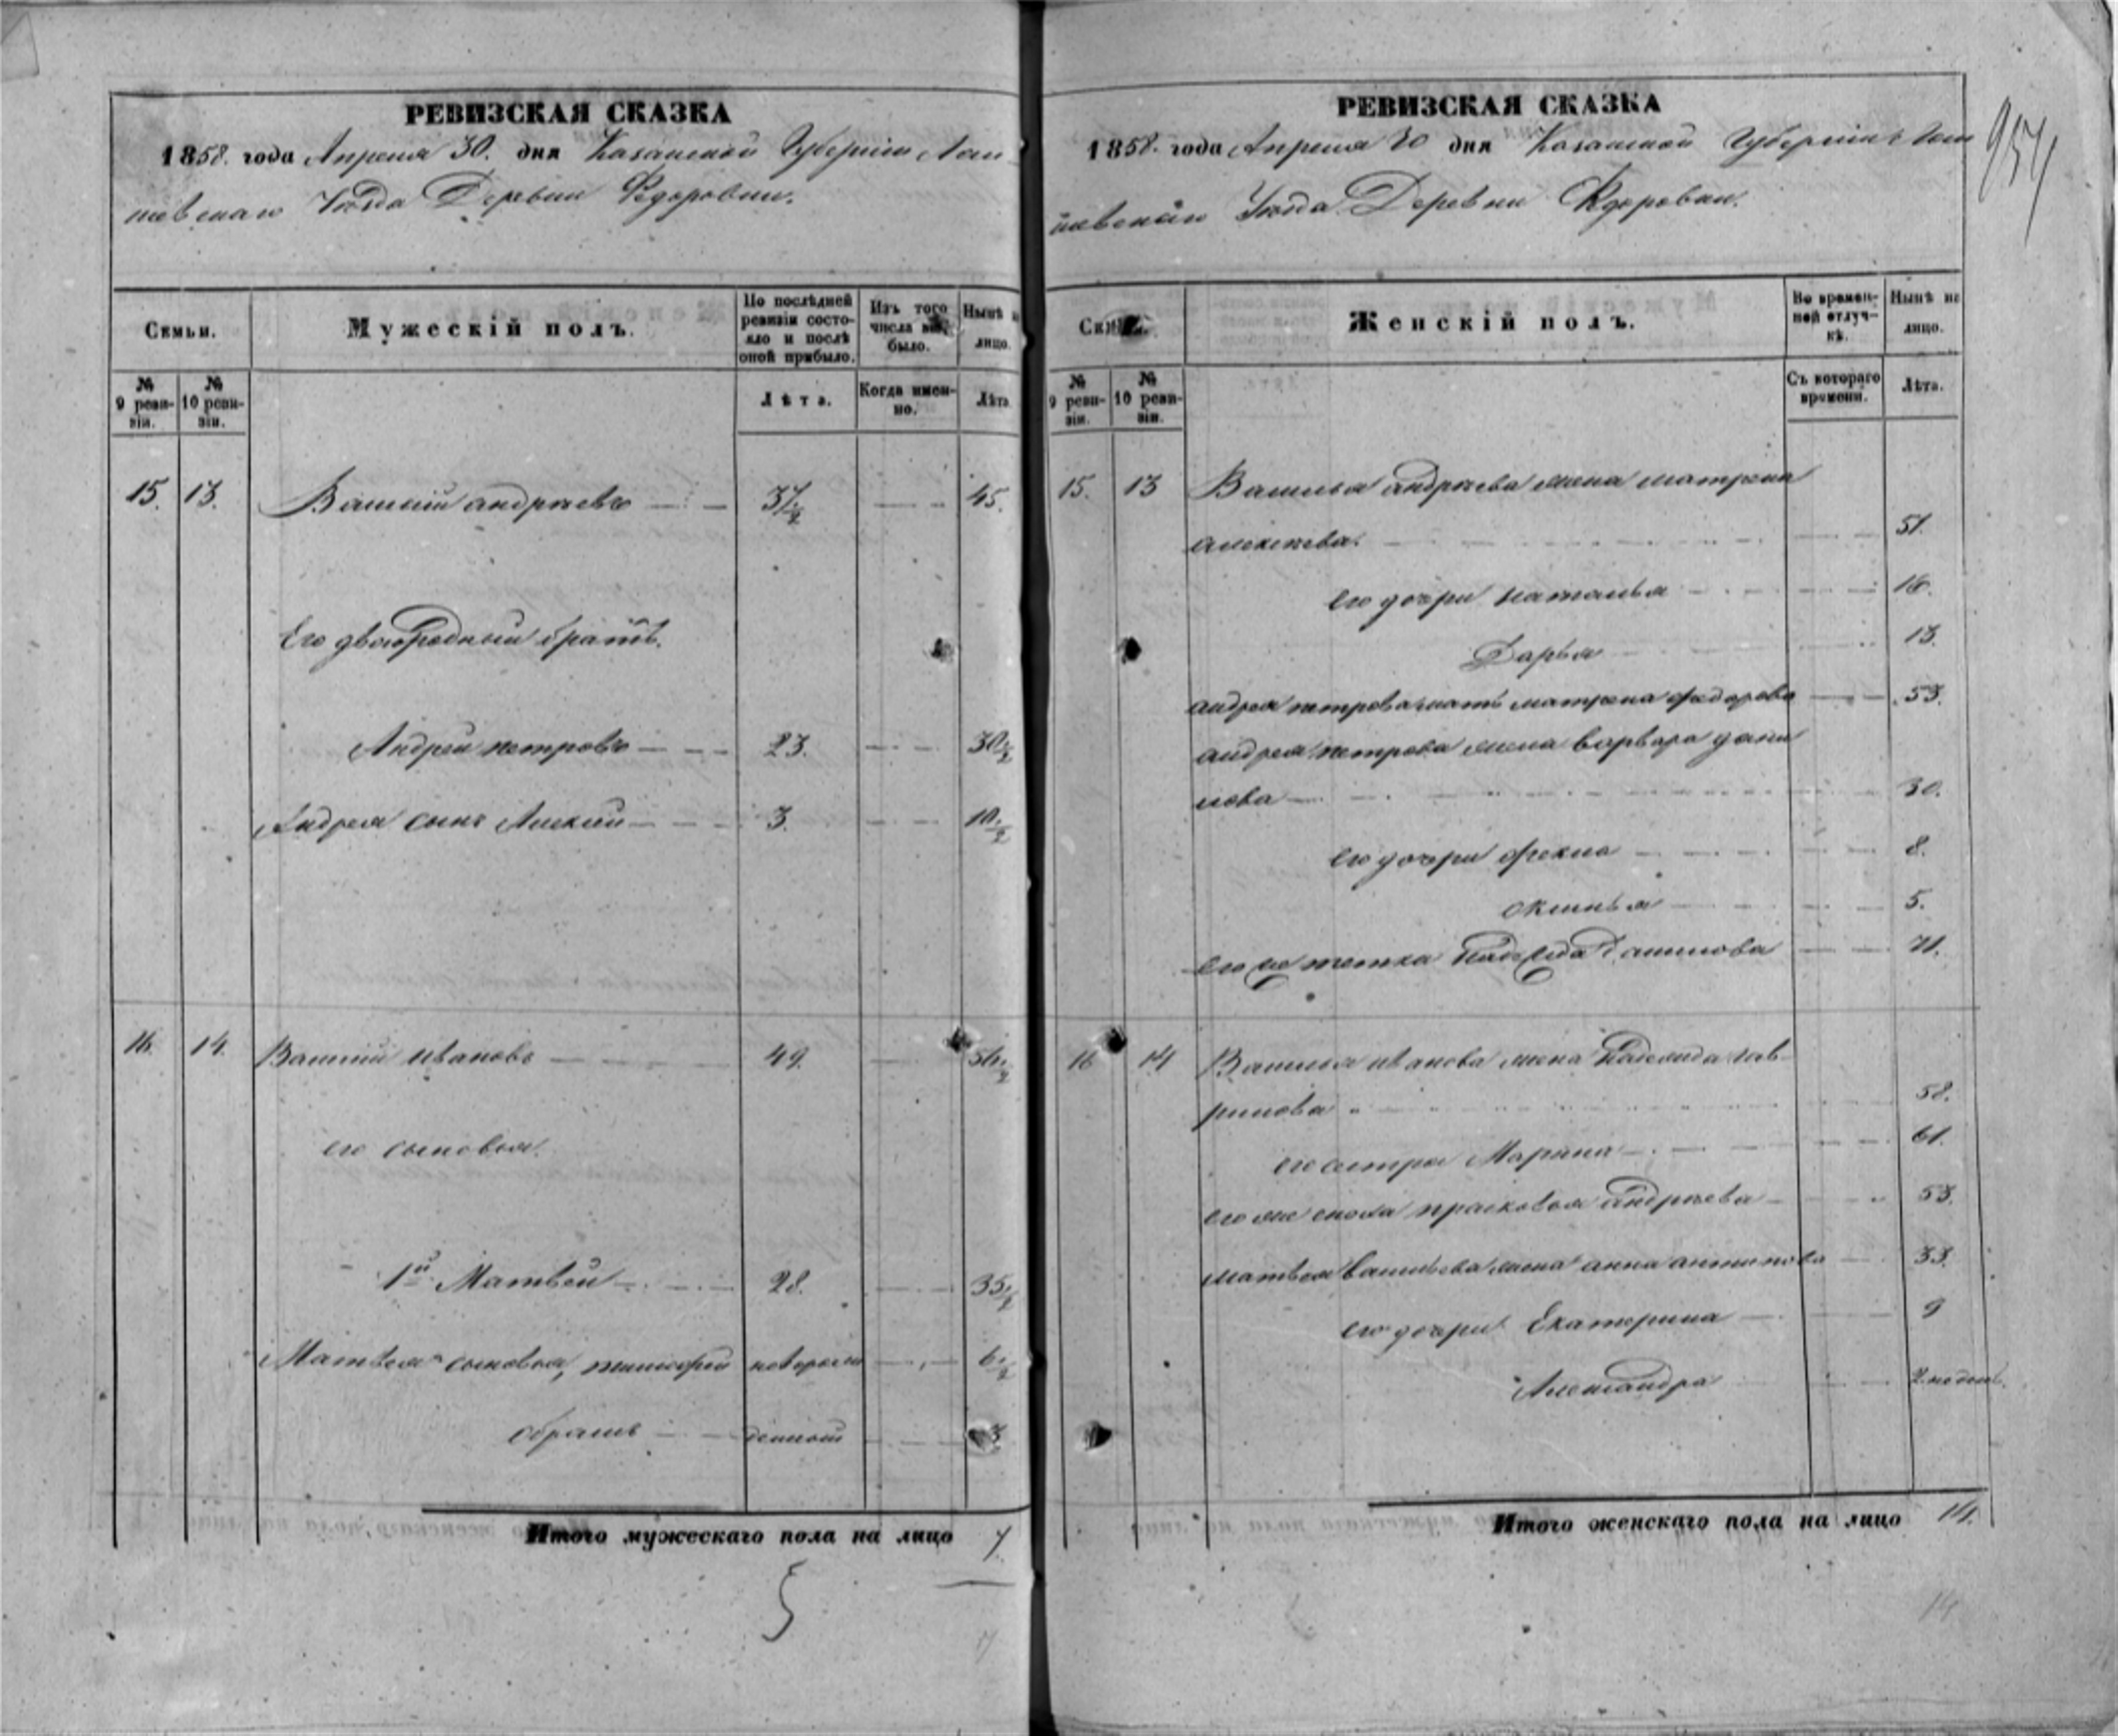 РЕВИЗСКАЯ СКАЗКА
1858. года Апреля 30. дня Казанской Губернiи Лаи
шевскаго Уѣзда Деревни Федоровки.
Семьи.
Мужескiй полъ.
По послѣдней ревизiи состояло и послѣ оной прибыло.
Изъ того числа выбыло.
Нынѣ на лицо.
№ 9 ревизiи.
№ 10 ревизiи.
Лѣта.
Когда именно.
Лѣта
15. 13. Василiй андрѣевъ 37½ 45.
Его двоюродный братъ.
Андрей петровъ 23. 30½
Андрея сынъ Алексѣй 3. 10½
16. 14. Василiй ивановъ 49. 56½
его сыновья.
1й Матвѣй 28. 35½
Матвѣя сыновья, тимофей новорож 6½
денной 3
Итого мужескаго пола на лицо 7.
954
РЕВИЗСКАЯ СКАЗКА
1858. года Апреля 30 дня Казанской Губернiи Лаи
шевскаго Уѣзда Деревни Федоровки.
Семьи.
Женскiй полъ.
Во временной отлучкѣ.
Нынѣ на лицо.
№ 9 ревизiи.
№ 10 ревизiи.
Съ котораго времени.
Лѣта.
15. 13 Василья андрѣева жена матрена
алексѣева. 51.
его дочри наталья 16.
Дарья 13.
андрея петрова мать матрена федорова 53.
андрея петрова жена варвара дани
лова 30.
его дочери фекла 8.
оксинья 5.
его же тетка Надежда Данилова 71.
16 14 Василья иванова жена Надежда гав
рилова 58.
его сестра Марина 61.
его же сноха прасковья андрѣева 53.
матвея васильева жена анна антипова 33.
его дочри Екатерина 9
Александра 2 недѣль.
Итого женскаго пола на лицо 14.
14